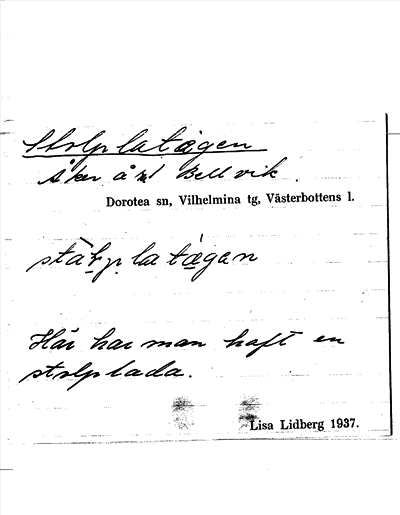 Stolplatägen
Åker å nl Bellvik.
Dorotea sn, Vilhelmina tg, Västerbottens l.
stȧḷp̣latä́gan
Här har man haft en
stolplada.
Lisa Lidberg 1937.